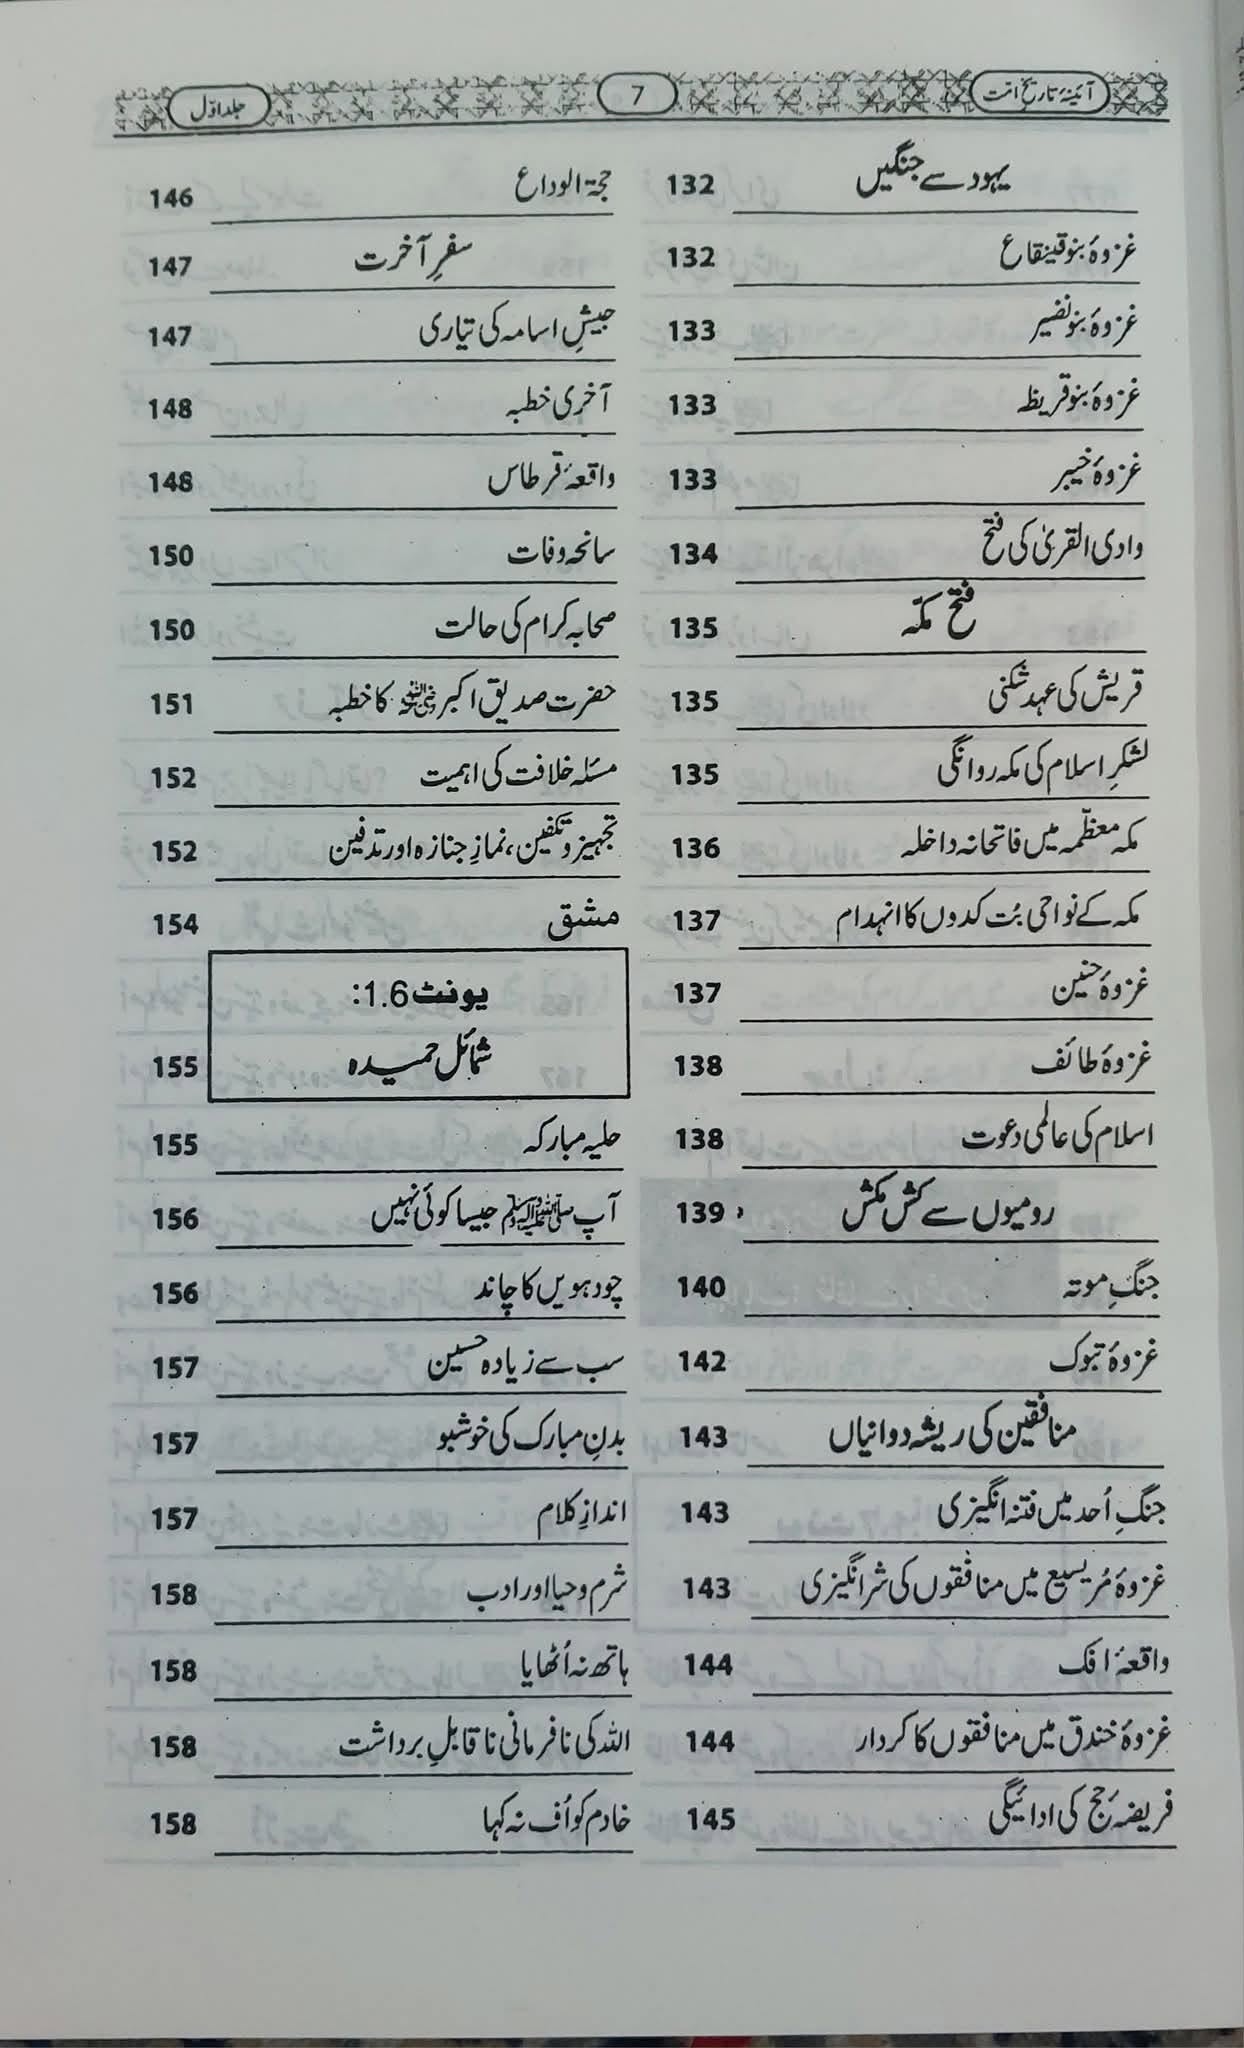 آئینۂ تاریخ امت
7
جلد اوّل
یہود سے جنگیں 132
غزوۂ بنو قینقاع 132
غزوۂ بنو نضیر 133
غزوۂ بنو قریظہ 133
غزوۂ خیبر 133
وادی القریٰ کی فتح 134
فتح مکہّ 135
قریش کی عہد شکنی 135
لشکرِ اسلام کی مکہ روانگی 135
مکہ معظّمہ میں فاتحانہ داخلہ 136
مکہ کے نواحی بُت کدوں کا انہدام 137
غزوۂ حنین 137
غزوۂ طائف 138
اسلام کی عالمی دعوت 138
رومیوں سے کش مکش 139
جنگِ موتہ 140
غزوۂ تبوک 142
منافقین کی ریشہ دوانیاں 143
جنگِ اُحد میں فتنہ انگیزی 143
غزوۂ مُریسیع میں منافقوں کی شر انگیزی 143
واقعۂ افک 144
غزوۂ خندق میں منافقوں کا کردار 144
فریضۂ حج کی ادائیگی 145
حجۃ الوداع 146
سفرِ آخرت 147
جیشِ اسامہ کی تیاری 147
آخری خطبہ 148
واقعۂ قرطاس 148
سانحہ وفات 150
صحابہ کرام کی حالت 150
حضرت صدیق اکبر رضی اللہ عنہ کا خطبہ 151
مسئلہ خلافت کی اہمیت 152
تجہیز و تکفین، نمازِ جنازہ اور تدفین 152
مشق 154
یونٹ 1.6:
شمائل حمیدہ 155
حلیہ مبارکہ 155
آپ ﷺ جیسا کوئی نہیں 156
چودہویں کا چاند 156
سب سے زیادہ حسین 157
بدنِ مبارک کی خوشبو 157
اندازِ کلام 157
شرم و حیا اور ادب 158
ہاتھ نہ اُٹھایا 158
اللہ کی نافرمانی ناقابلِ برداشت 158
خادم کو اُف نہ کہا 158